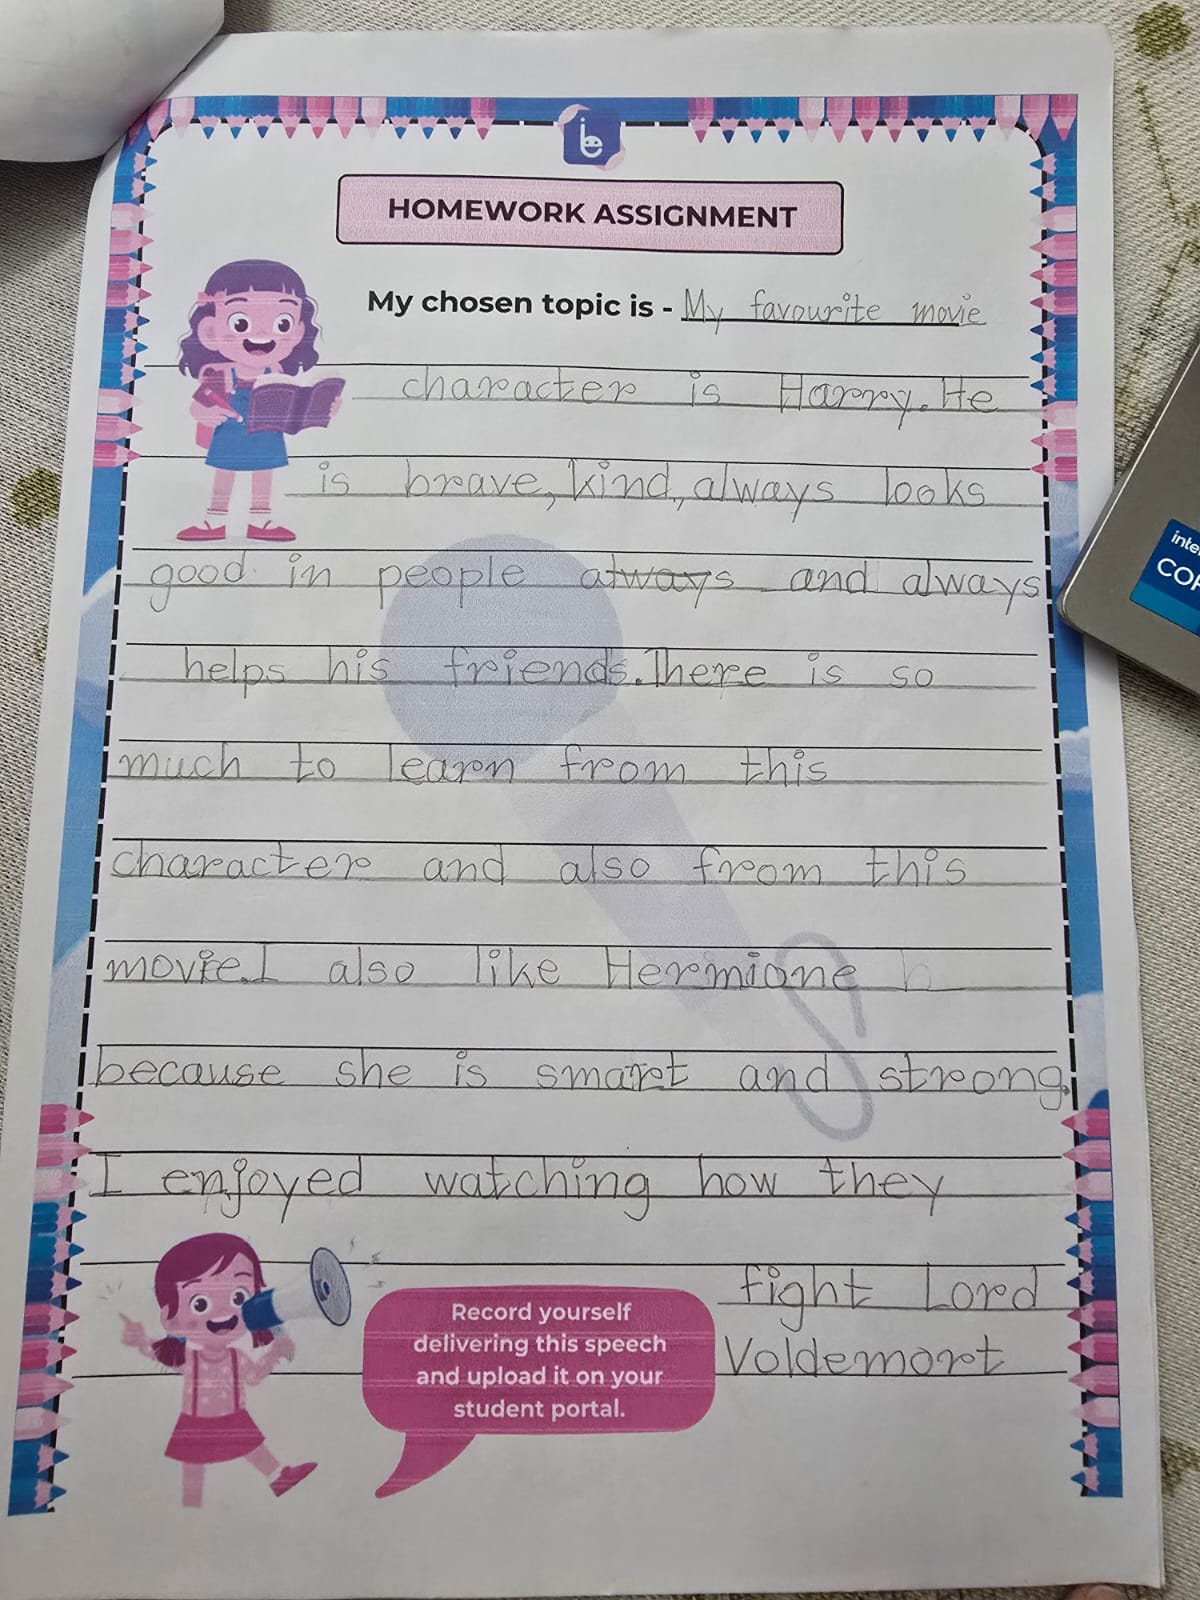 HOMEWORK ASSIGNMENT
My chosen topic is - My favourite movie
character is Harry. He
is brave, kind, always looks
good in people always and always
helps his friends. There is so
much to learn from this
character and also from this
movie. I also like Hermione h
because she is smart and strong.
I enjoyed watching how they
fight Lord
Voldemort
Record yourself
delivering this speech
and upload it on your
student portal.
inte
COR